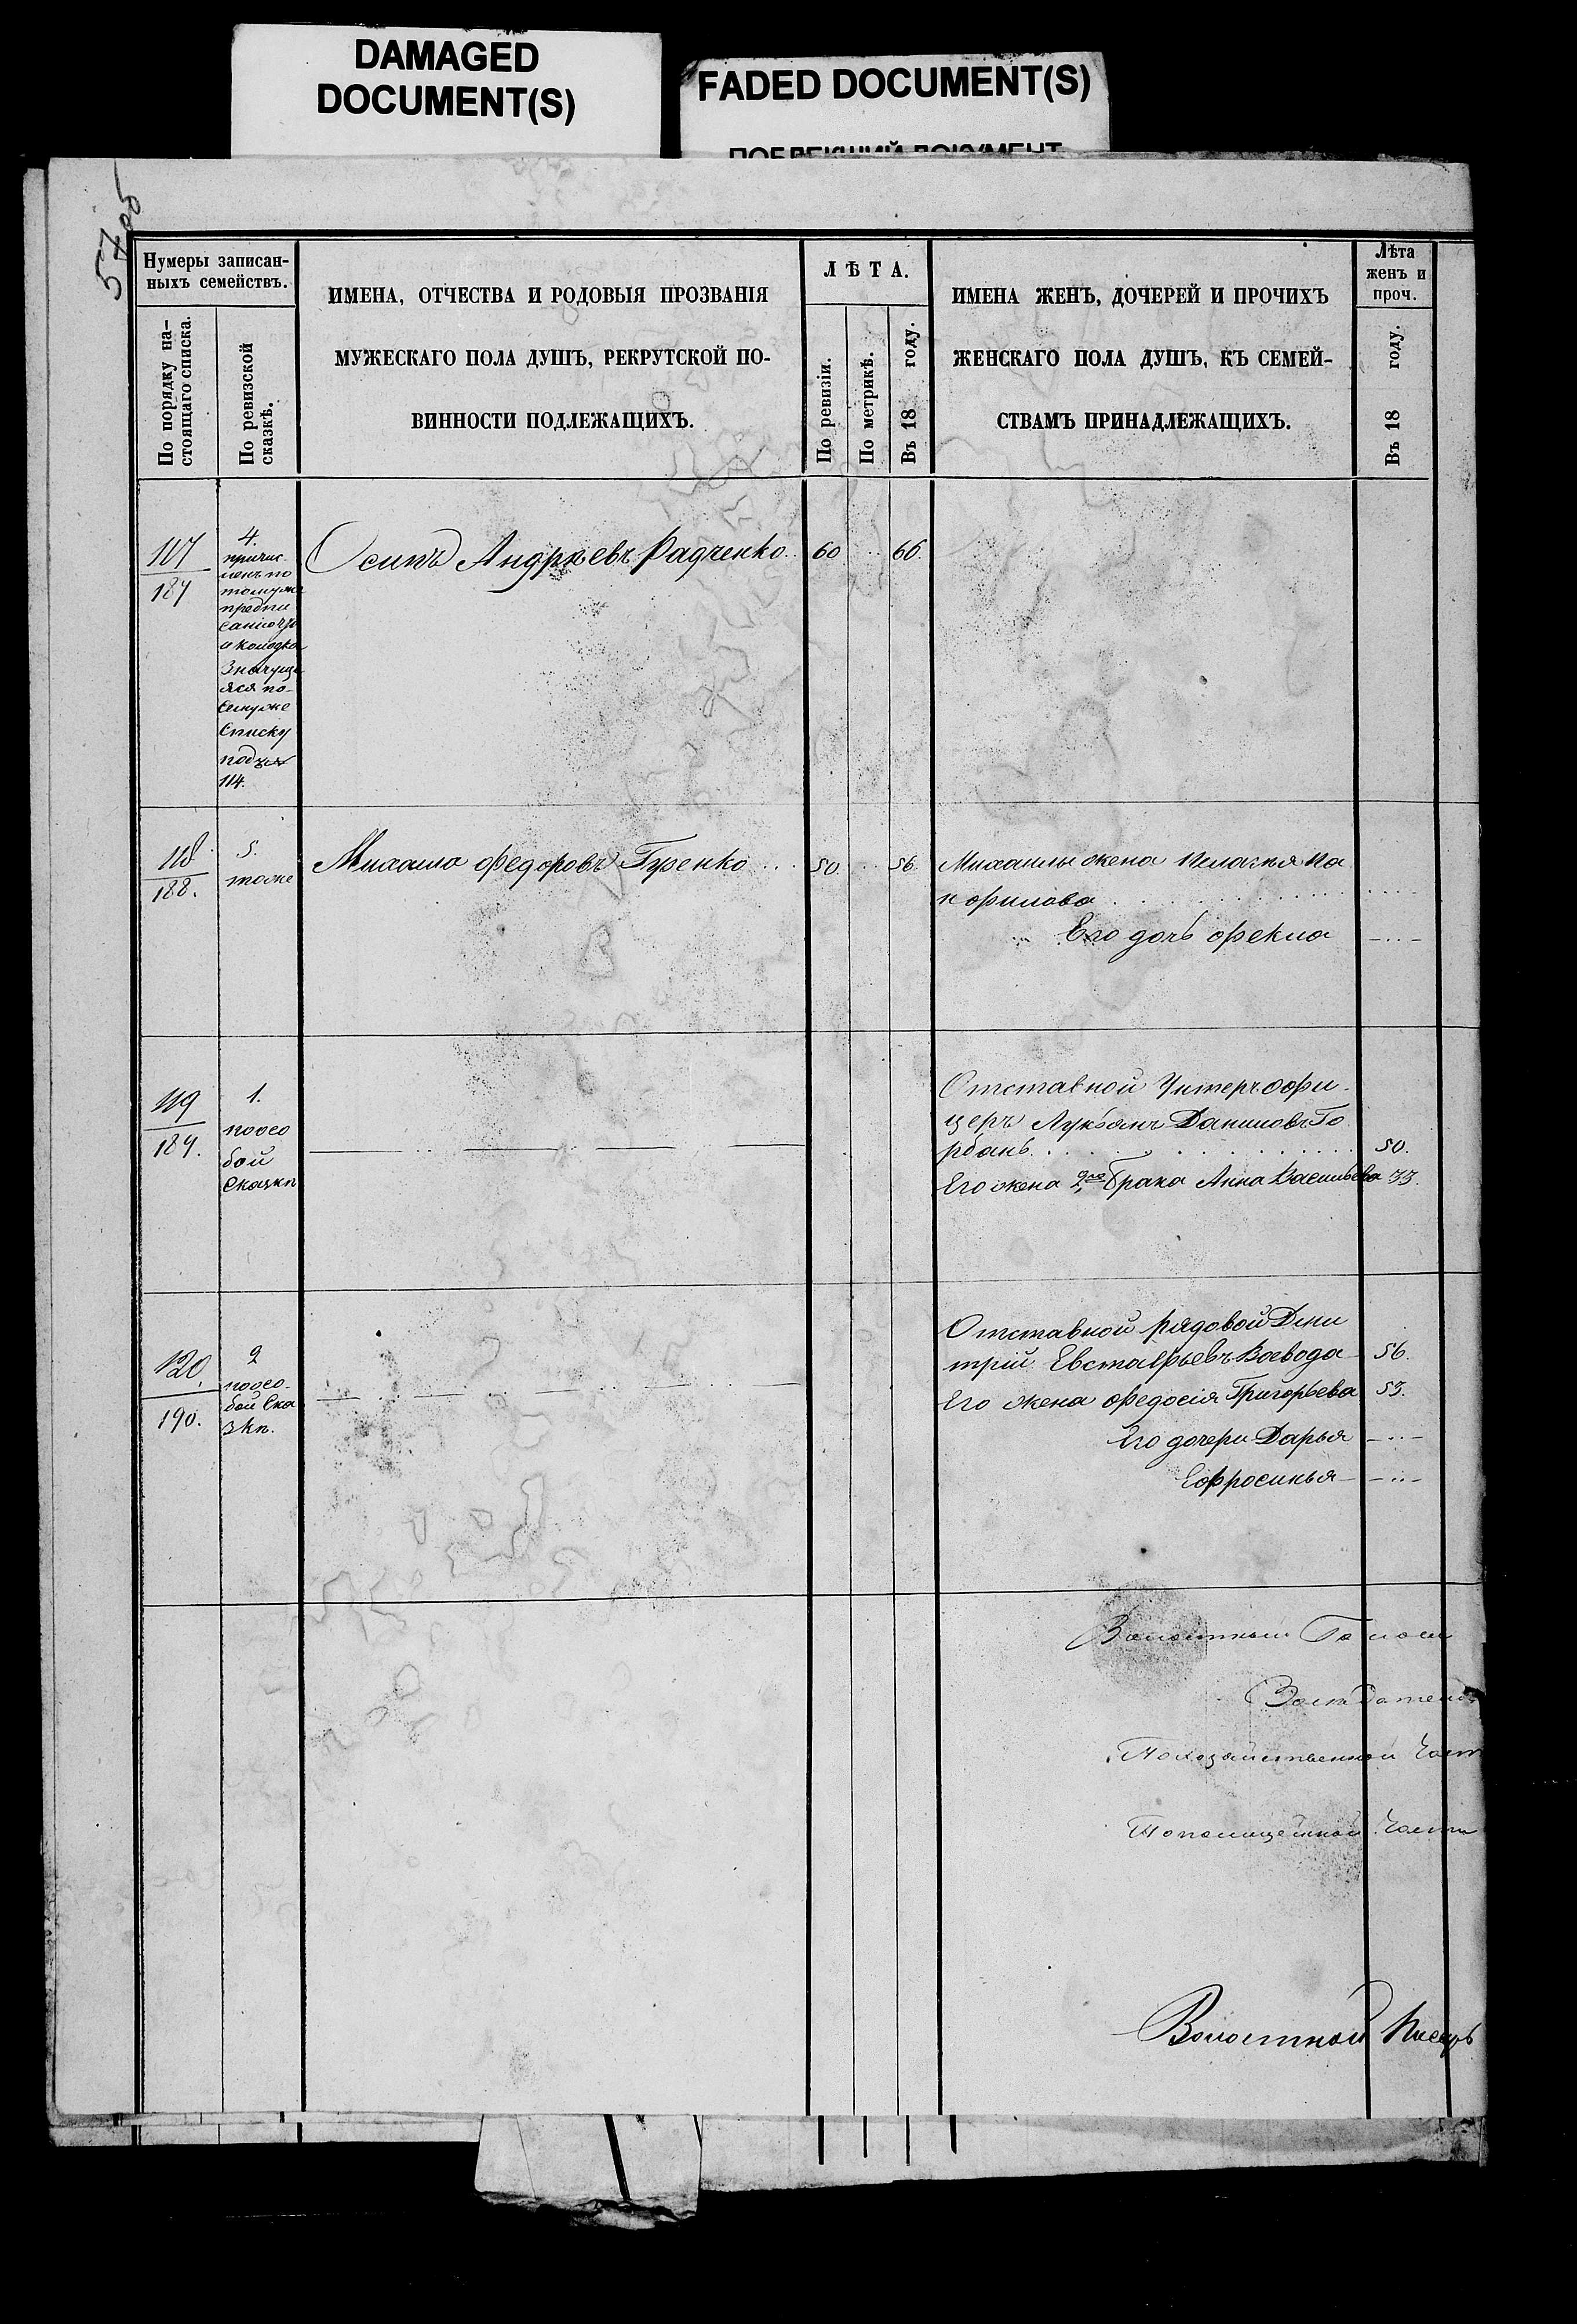 DAMAGED
DOCUMENT(S)
FADED DOCUMENT(S)
ПОБЛЕКШИЙ ДОКУМЕНТ
Нумеры записан-
ныхъ семействъ.
По порядку на-
стоящаго списка.
По ревизской
сказкѣ.
ИМЕНА, ОТЧЕСТВА И РОДОВЫЯ ПРОЗВАНІЯ
МУЖЕСКАГО ПОЛА ДУШЪ, РЕКРУТСКОЙ ПО-
ВИННОСТИ ПОДЛЕЖАЩИХЪ.
ЛѢТА.
По ревизіи.
По метрикѣ.
Въ 18 году.
ИМЕНА ЖЕНЪ, ДОЧЕРЕЙ И ПРОЧИХЪ
ЖЕНСКАГО ПОЛА ДУШЪ, КЪ СЕМЕЙ-
СТВАМЪ ПРИНАДЛЕЖАЩИХЪ.
Лѣта
женъ и
проч.
Въ 18 году.
117
187
4.
причис
ленъ по
томуже
предпи
санію
значуща
яся по
семуже
списку
под
114.
Осипъ Андрѣевъ Радченко 60 66.
118
188.
5.
тоже
Михаило Федоровъ Гуренко 50 56
Михаилы жена Пелагѣя Па
нфилова
Его дочь Фекла
119
189.
1.
поосо
бой
сказкѣ
Отставной Унтеръ офи
церъ Лукьянъ Даниловъ Го
рбань 50.
Его жена 2го брака Анна Васильева 33.
120.
190.
2
поосо-
бой ска
зкѣ.
Отставной рядовой Дми
трій Евстафьевъ Воевода 56.
Его жена Федосія Григорьева 53.
Его дочери Дарья
Ефросинья
Волостный Голова
Засѣдатели
По хозяйственной Част
По полицейской Части
Волостной Писарь